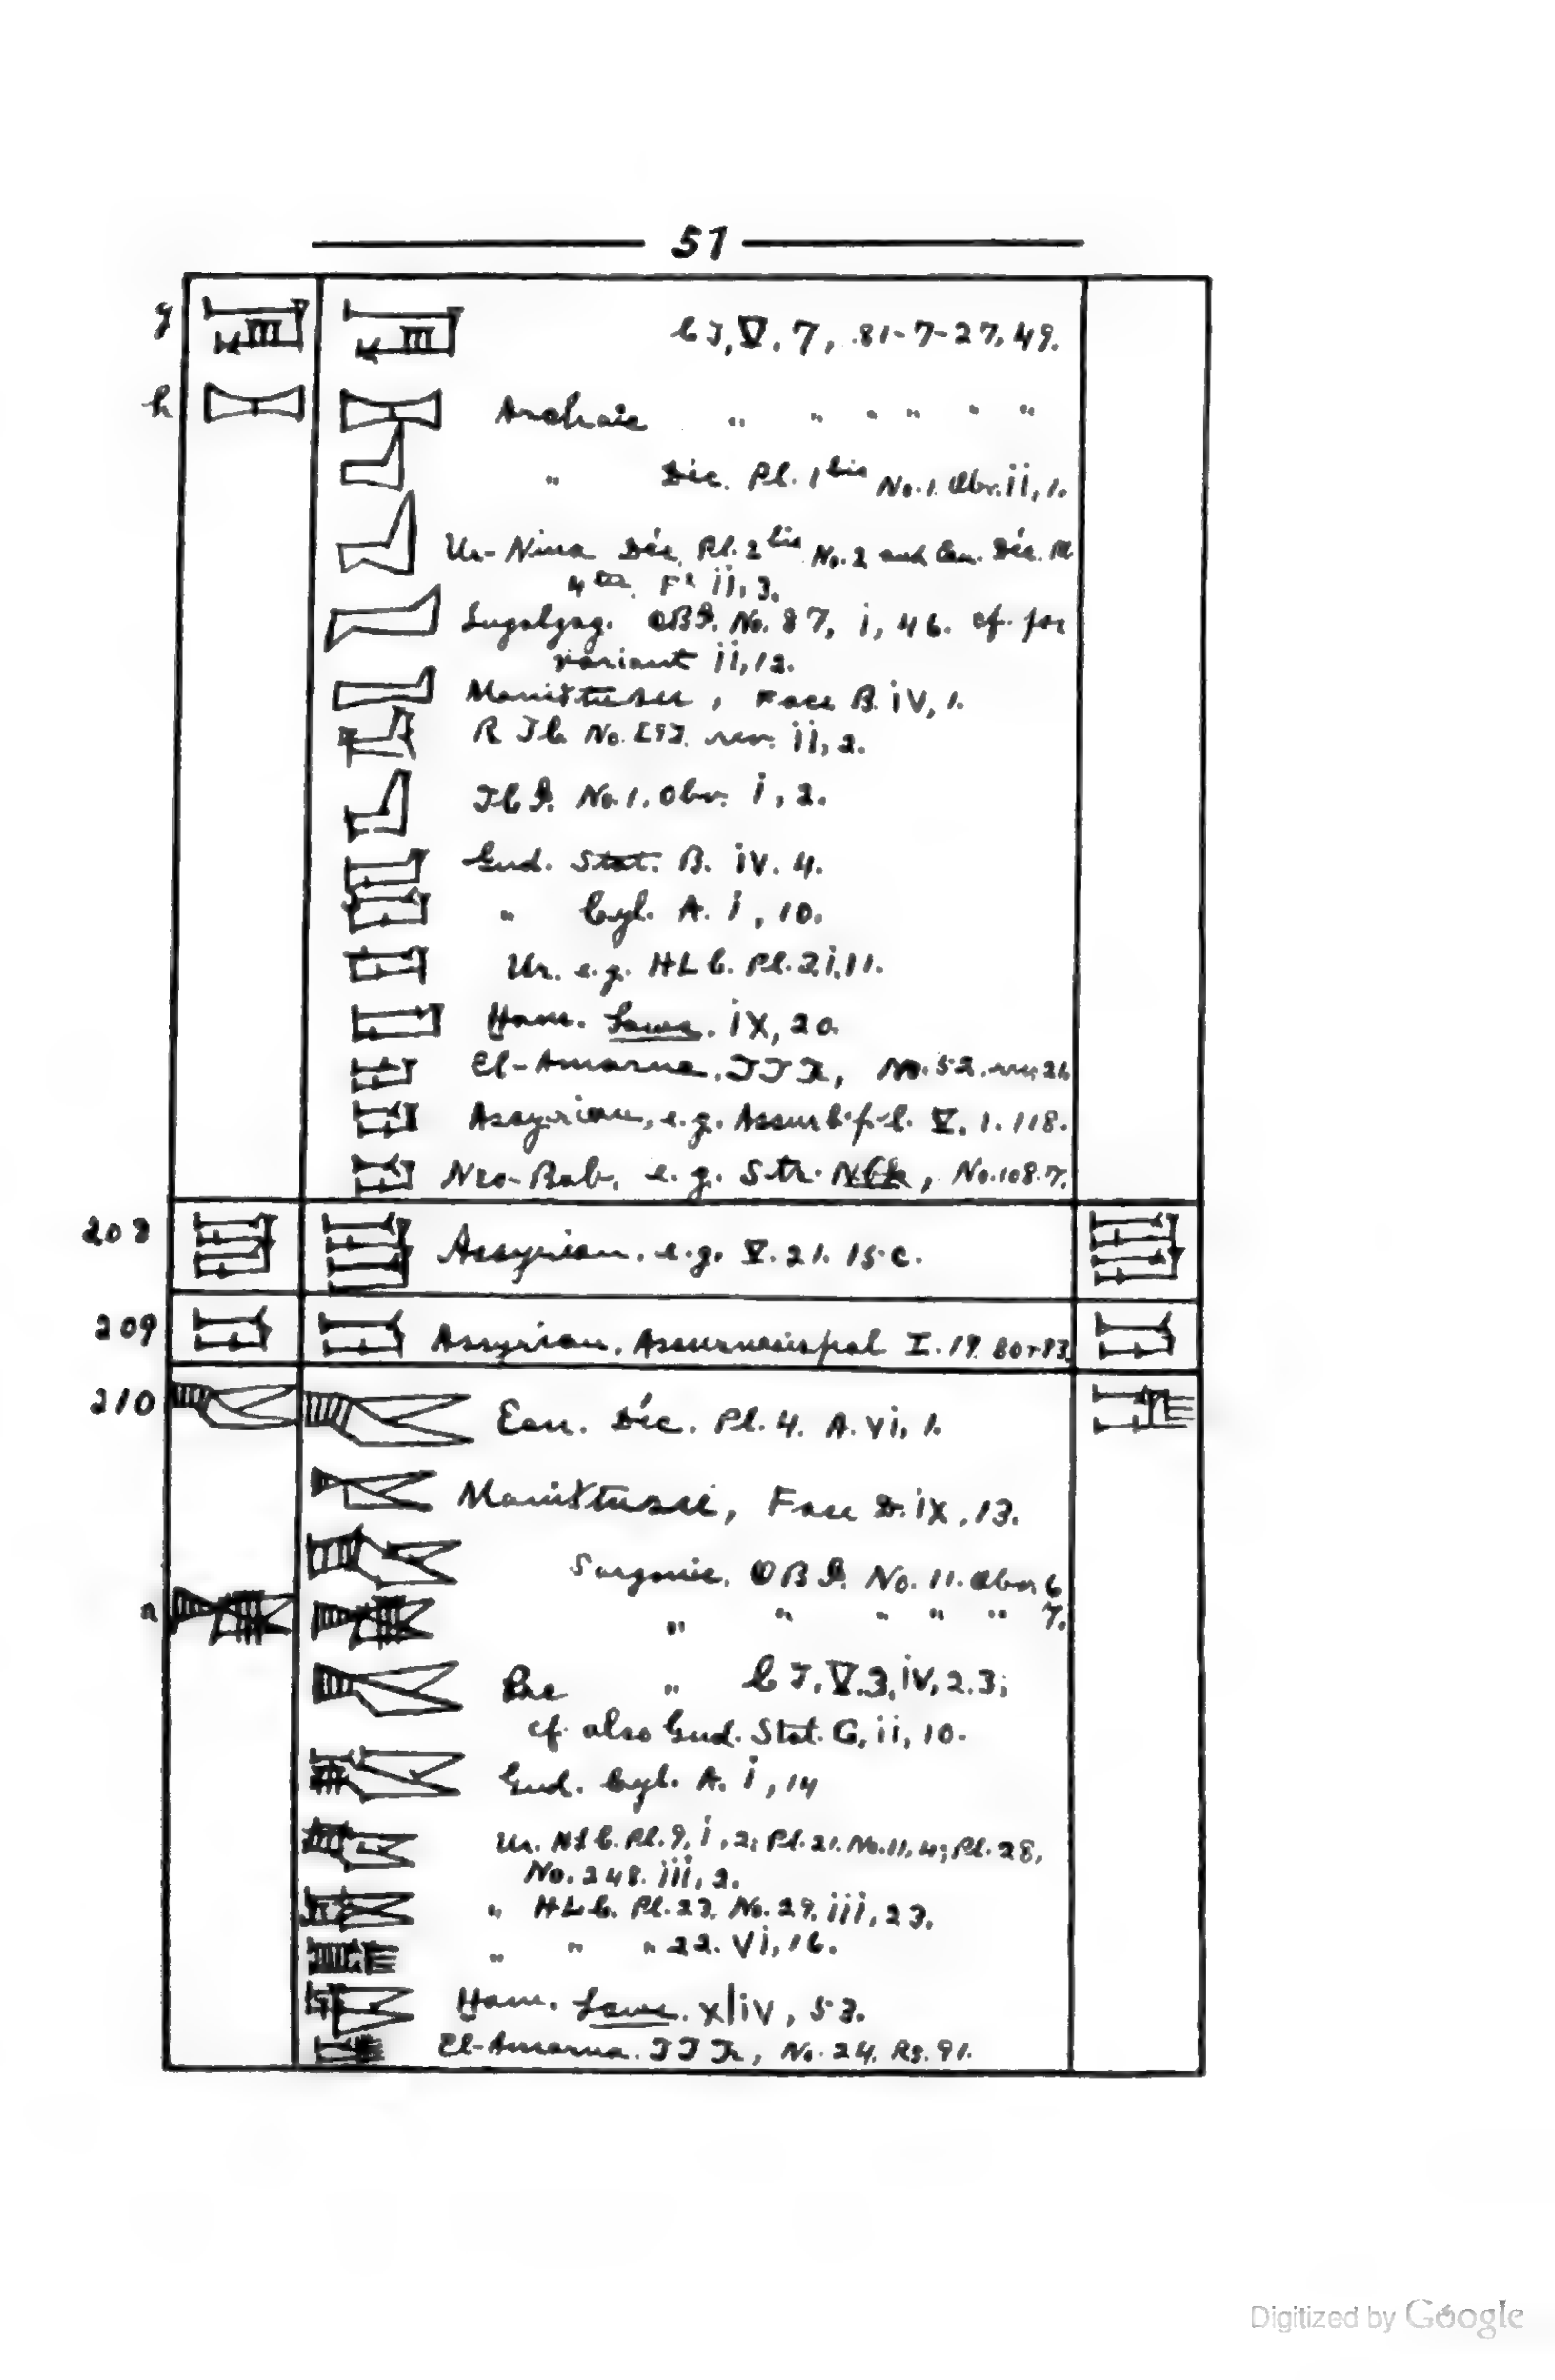 51
g CT, V. 7, 81-7-27, 49.
h Archaic " " " " " "
" Déc. Pl. 1 bis No. 1 Obv. ii, 1.
Ur-Nina Déc. Pl. 2 bis No. 2 and Ean. Déc. Pl
4 F ii, 3.
Lugalzag. OBI. No. 87, i, 46. cf. for
variant ii, 12.
Maništusu, Face B. iv, 1.
RTC No. rev. ii, 2.
No. 1. Obv. i, 2.
Gud. Stat. B. iv. 4.
" Cyl. A. i, 10.
Ur. e.g. HLC. Pl. 2, i, 11.
Ham. Laws. ix, 20.
El-Amarna. No. 52.
Assyrian, e.g. V. 1. 118.
Neo-Bab. e.g. Str. Nbk, No. 108. 7.
208 Assyrian, e.g. V. 21. 15 c.
209 Assyrian, Assurnasirpal I. 19.
210 Ean. Déc. Pl. 4. A. vi, 1.
Maništusu, Face D. ix, 13.
Sargonic. OBI. No. 11. Obv. 6
a " " " " " 7.
Pre " CT, V. 3, iv, 2. 3;
cf. also Gud. Stat. G, ii, 10.
Gud. Cyl. A. i, 14
Ur. Pl. 9, i, 2; Pl. 21. No. 11, 4; Pl. 28,
No. 248. iii, 2.
" HLC. Pl. 23. No. 29. iii, 23.
" " " 22. vi, 16.
Ham. Laws. xliv, 53.
El-Amarna. No. 24. Rs. 91.
Digitized by Google